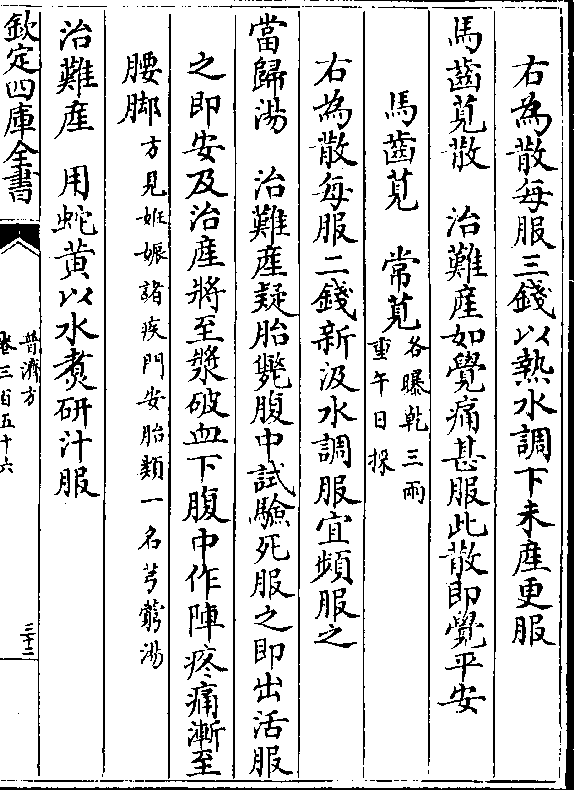 右為散每服三錢以熱水調下未産更服
馬齒莧散　治難産如覺痛甚服此散即覺平安
馬齒莧　常莧各曝乾三兩重午日採
右為散每服二錢新汲水調服宜頻服之
當歸湯　治難産疑胎斃腹中試驗死服之即出活服
之即安及治産將至漿破血下腹中作陣疼痛漸至
腰脚方見姙娠諸疾門安胎類一名芎藭湯
治難産　用蛇黄以水煑研汁服
欽定四庫全書
普濟方
卷三百五十六
三十二